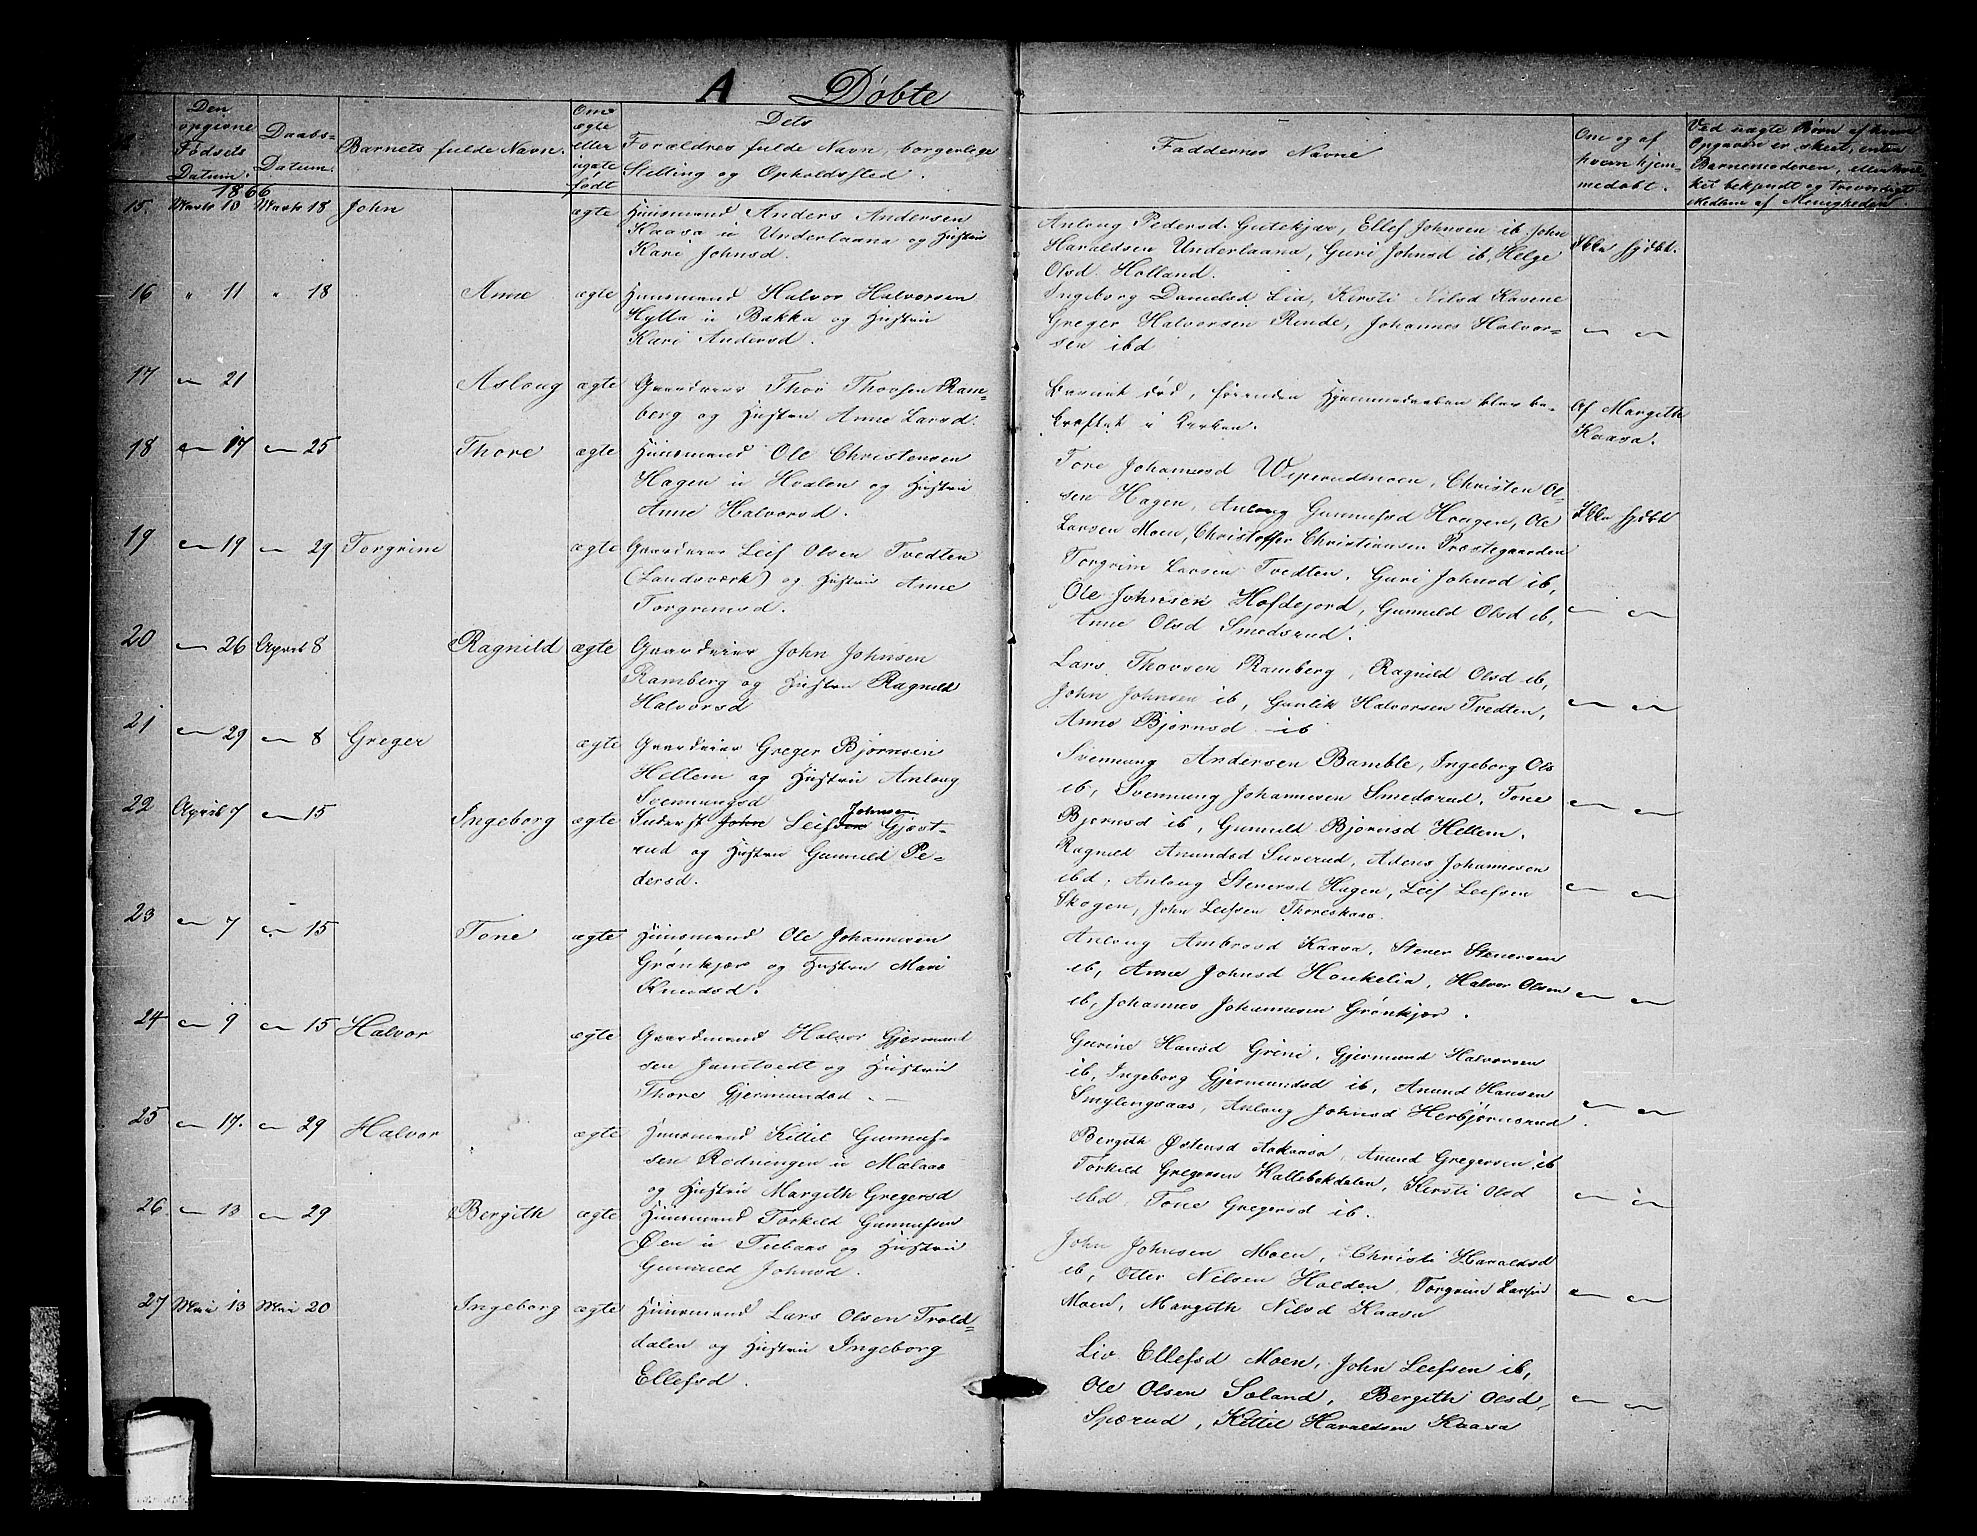 A Døbte
Den opgivne Fødsels Datum.
Daabs-Datum.
Barnets fulde Navn.
Om ægte eller uægte født
Dets Forældres fulde Navn, borgerlige Stilling og Opholdssted.
Faddernes Navne
Om og af hvem hjemmedøbt.
Ved uægte Børn af hvem Opgaven er skeet, enten Barnemoderen, eller hvilket bekjendt og troværdigt Medlem af Menigheden.
1866
15. Marts 10 Marts 18 John ægte Huusmand Anders Andersen
Kaasa u Underlaana og Hustru
Kari Johnsd.
Anlaug Pedersd. Gutekjær, Ellef Johnsen ib. John
Haraldsen Underlaana, Guri Johnsd ib, Helge
Olsd. Holland.
Ikke hjdbt.
16 " 11 " 18 Anne ægte Huusmand Halvor Halvorsen
Hytta u Bakka og Hustru
Kari Andersd.
Ingeborg Danielsd Lia, Kersti Nilsd Kasene
Greger Halvorsen Rinde, Johannes Halvor-
sen ibd
17 " 21 Aslaug ægte Gaardeier Thov Thovsen Ram=
berg og Hustru Anne Larsd.
Barnet død, førenden Hjemmedaaben blev be-
kræftet i Kirken.
Af Margith
Kaasa.
18 " 17 " 25 Thore ægte Huusmand Ole Christensen
Hagen u Hvalen og Hustru
Anne Halvorsd.
Tore Johannesd Weperudmoen, Christen Ol=
sen Hagen, Anlaug Gunnufsd Haagen, Ole
Larsen Moen, Christoffer Christiansen Præstegaarden
Ikke hjdbt
19 " 19 " 29 Torgrim ægte Gaardeier Leif Olsen Tvedten
(Landsværk) og Hustru Anne
Torgrimsd.
Torgrim Larsen Tvedten, Guri Johnsd ib,
Ole Johnsen Hofdejord, Gunnild Olsd ib,
Anne Olsd Smedsrud.
20 " 26 April 8 Ragnild ægte Gaardeier John Johnsen
Ramberg og Hustru Ragnild
Halvorsd
Lars Thovsen Ramberg, Ragnild Olsd ib,
John Johnsen ib, Gunlik Halvorsen Tvedten,
Anne Bjørnsd ib
21 " 29 " 8 Greger ægte Gaardeier Greger Bjørnsen
Hellem og Hustru Anlaug
Svennungsd
Svennung Andersen Bamble, Ingeborg Ols
ib, Svennung Johannesen Smedsrud, Tone
Bjørnsd ib, Gunnild Bjørnsd Hellem.
22 April 7 " 15 Ingeborg ægte Inderst John Leifsen Johnsen Gjæst-
rud og Hustru Gunnild Pe-
dersd.
Ragnild Anundsd Suverud, Adens Johannesen
ibd, Anlaug Stenersd Hagen, Leif Leifsen
Skogen, John Leifsen Thoreskaas.
23 " 7 " 15 Tone ægte Huusmand Ole Johannesen
Grønkjær og Hustru Mari
Knudsd.
Anlaug Ambrosd Kaasa, Stener Stenersen
ib, Anne Johnsd Haukelia, Halvor Olsen
ib, Johannes Johannesen Grønkjær.
24 " 9 " 15 Halvor ægte Gaardmand Halvor Gjermund
sen Jamtvedt og Hustru
Thore Gjermundsd.
Gurine Hansd Greni, Gjermund Halvorsen
ib, Ingeborg Gjermundsd ib, Anund Hansen
Smylingsaas, Anlaug Johnsd Herbjørnsrud.
25 " 17. " 29 Halvor ægte Huusmand Kittil Gunnuf-
sen Rodningen u Mælaas
og Hustru Margith Gregersd
Bergith Østensd Aakaasa, Anund Gregersen ib
Torkild Gregersen Kallebækdalen, Kersti Olsd
ibd. Tone Gregersd ib.
26 " 13 " 29 Bergith ægte Huusmand Torkild Gunnufsen
Øen u Tubaas og Hustru
Gunnild Johnsd.
John Johnsen Moen, Christi Haraldsd
ib, Otter Nilsen Holden, Torgrim Larsen
Moen, Margith Nilsd Kaasa
27 Mai 13 Mai 20 Ingeborg ægte Huusmand Lars Olsen Trold=
dalen og Hustru Ingeborg
Ellefsd.
Liv Ellefsd Moen, John Leifsen ib,
Ole Olsen Soland, Bergith Olsd,
Spærud, Kittil Haraldsen Kaasa